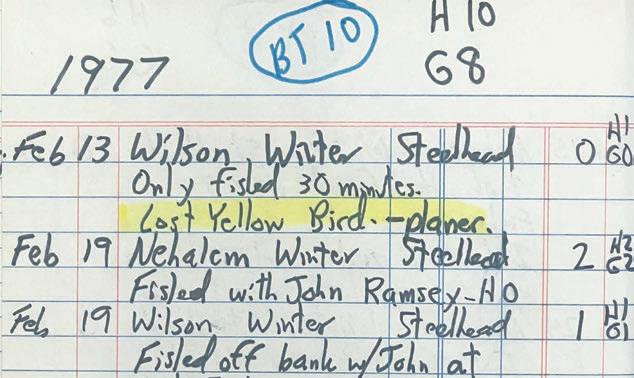 H 10
BT 10
1977
G8
Feb 13 Wilson Winter Steelhead 0 H1 G0
Only fished 30 minutes.
Lost Yellow Bird. - planer.
Feb 19 Nehalem Winter Steelhead 2 H2 G2
Fished with John Ramsey - H0
Feb 19 Wilson Winter Steelhead 1 H1 G1
Fished off bank w/John at